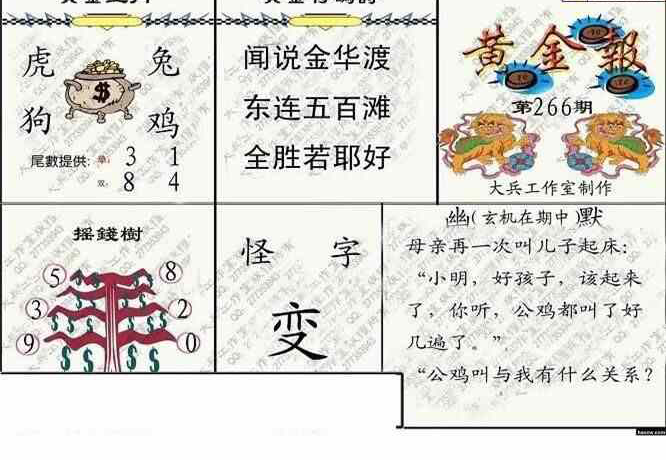 虎 兔
狗 鸡
尾數提供: 单: 3 1
双: 8 4
闻说金华渡
东连五百滩
全胜若耶好
黄金报
第266期
大兵工作室制作
摇錢樹
5 8
3 2
9 0
怪 字
变
幽(玄机在期中)默
母亲再一次叫儿子起床:
“小明，好孩子，该起来
了，你听，公鸡都叫了好
几遍了。”
“公鸡叫与我有什么关系?